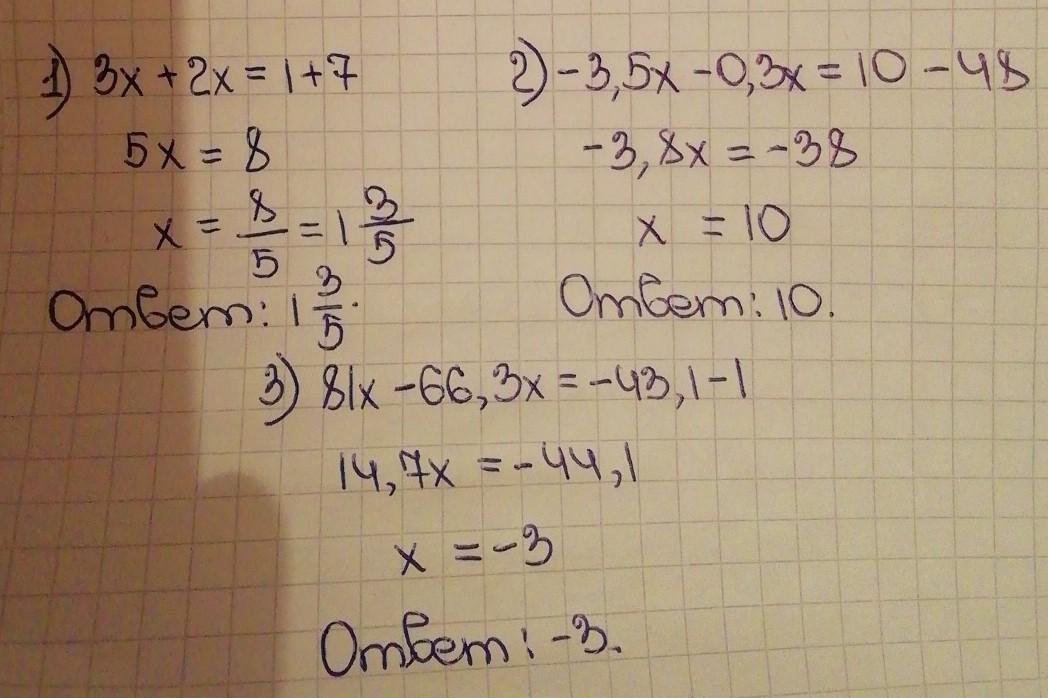 1) 3x + 2x = 1 + 7
5x = 8
x = 8/5 = 1 3/5
Ответ: 1 3/5.
2) -3,5x - 0,3x = 10 - 48
-3,8x = -38
x = 10
Ответ: 10.
3) 81x - 66,3x = -43,1 - 1
14,7x = -44,1
x = -3
Ответ: -3.